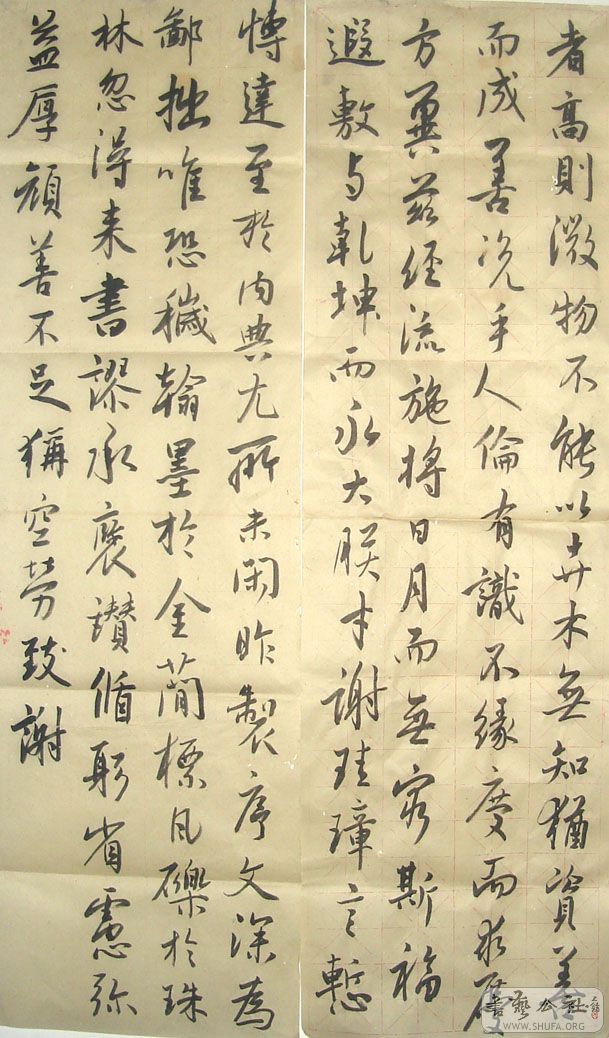 者高則微物不能以卉木無知猶資善
而成善況乎人倫有識不緣慶而求慶
方冀茲經流施將日月而無窮斯福
遐敷与乾坤而永大朕才謝珪璋言慙
博達至於內典尤所未閑昨製序文深為
鄙拙唯恐穢翰墨於金簡標瓦礫於珠
林忽得来書謬承褒讚循躬省慮弥
益厚顏善不足稱空勞致謝
書藝公社
WWW.SHUFA.ORG